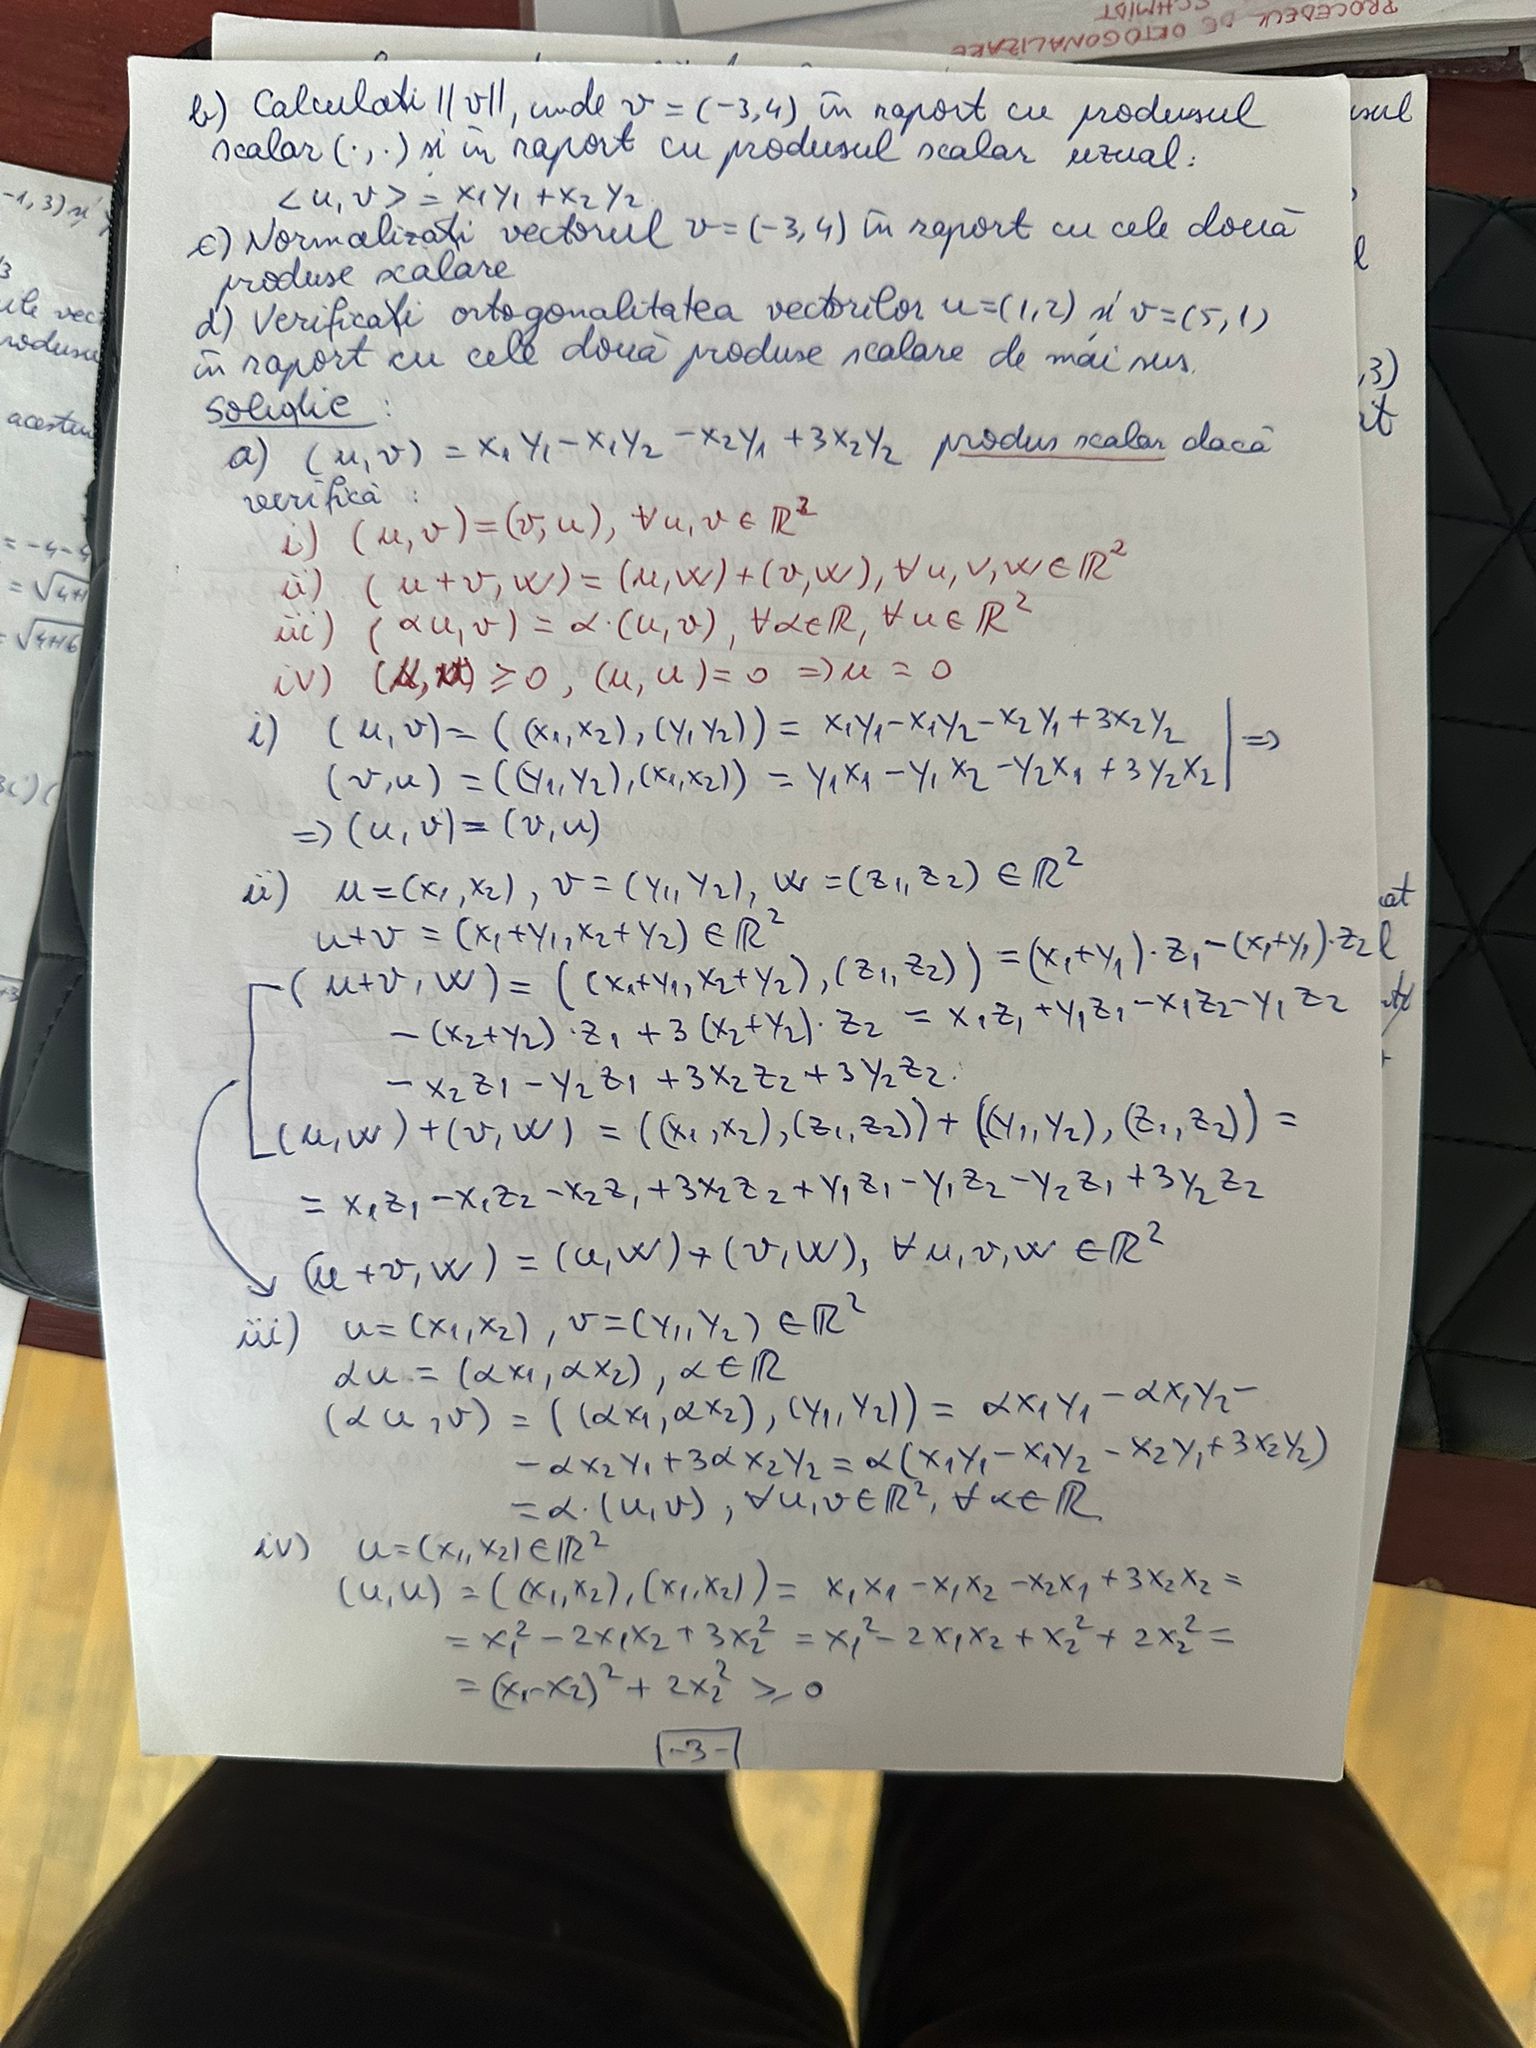 PROCEDEUL DE ORTOGONALIZARE
SCHMIDT
b) Calculați ||v||, unde v = (-3,4) în raport cu produsul
scalar (·,·) și în raport cu produsul scalar uzual:
<u,v> = x₁y₁ + x₂y₂
c) Normalizați vectorul v = (-3,4) în raport cu cele două
produse scalare
d) Verificați ortogonalitatea vectorilor u = (1,2) și v = (5,1)
în raport cu cele două produse scalare de mai sus.
Soluție:
a) (u,v) = x₁y₁ - x₁y₂ - x₂y₁ + 3x₂y₂ produs scalar dacă
verifică:
i) (u,v) = (v,u), ∀u,v ∈ ℝ²
ii) (u+v,w) = (u,w) + (v,w), ∀u,v,w ∈ ℝ²
iii) (αu,v) = α·(u,v), ∀α∈ℝ, ∀u∈ℝ²
iv) (u,u) ≥ 0, (u,u) = 0 => u = 0
i) (u,v) = ((x₁,x₂),(y₁,y₂)) = x₁y₁ - x₁y₂ - x₂y₁ + 3x₂y₂ | =>
(v,u) = ((y₁,y₂),(x₁,x₂)) = y₁x₁ - y₁x₂ - y₂x₁ + 3y₂x₂ |
=> (u,v) = (v,u)
ii) u = (x₁,x₂), v = (y₁,y₂), w = (z₁,z₂) ∈ ℝ²
u+v = (x₁+y₁, x₂+y₂) ∈ ℝ²
(u+v,w) = ((x₁+y₁, x₂+y₂),(z₁,z₂)) = (x₁+y₁)·z₁ - (x₁+y₁)·z₂
- (x₂+y₂)·z₁ + 3(x₂+y₂)·z₂ = x₁z₁ + y₁z₁ - x₁z₂ - y₁z₂
- x₂z₁ - y₂z₁ + 3x₂z₂ + 3y₂z₂.
(u,w) + (v,w) = ((x₁,x₂),(z₁,z₂)) + ((y₁,y₂),(z₁,z₂)) =
= x₁z₁ - x₁z₂ - x₂z₁ + 3x₂z₂ + y₁z₁ - y₁z₂ - y₂z₁ + 3y₂z₂
(u+v,w) = (u,w) + (v,w), ∀u,v,w ∈ ℝ²
iii) u = (x₁,x₂), v = (y₁,y₂) ∈ ℝ²
αu = (αx₁, αx₂), α∈ℝ
(αu,v) = ((αx₁,αx₂),(y₁,y₂)) = αx₁y₁ - αx₁y₂ -
- αx₂y₁ + 3αx₂y₂ = α(x₁y₁ - x₁y₂ - x₂y₁ + 3x₂y₂)
= α·(u,v), ∀u,v∈ℝ², ∀α∈ℝ.
iv) u = (x₁,x₂) ∈ ℝ²
(u,u) = ((x₁,x₂),(x₁,x₂)) = x₁x₁ - x₁x₂ - x₂x₁ + 3x₂x₂ =
= x₁² - 2x₁x₂ + 3x₂² = x₁² - 2x₁x₂ + x₂² + 2x₂² =
= (x₁-x₂)² + 2x₂² ≥ 0
-3-